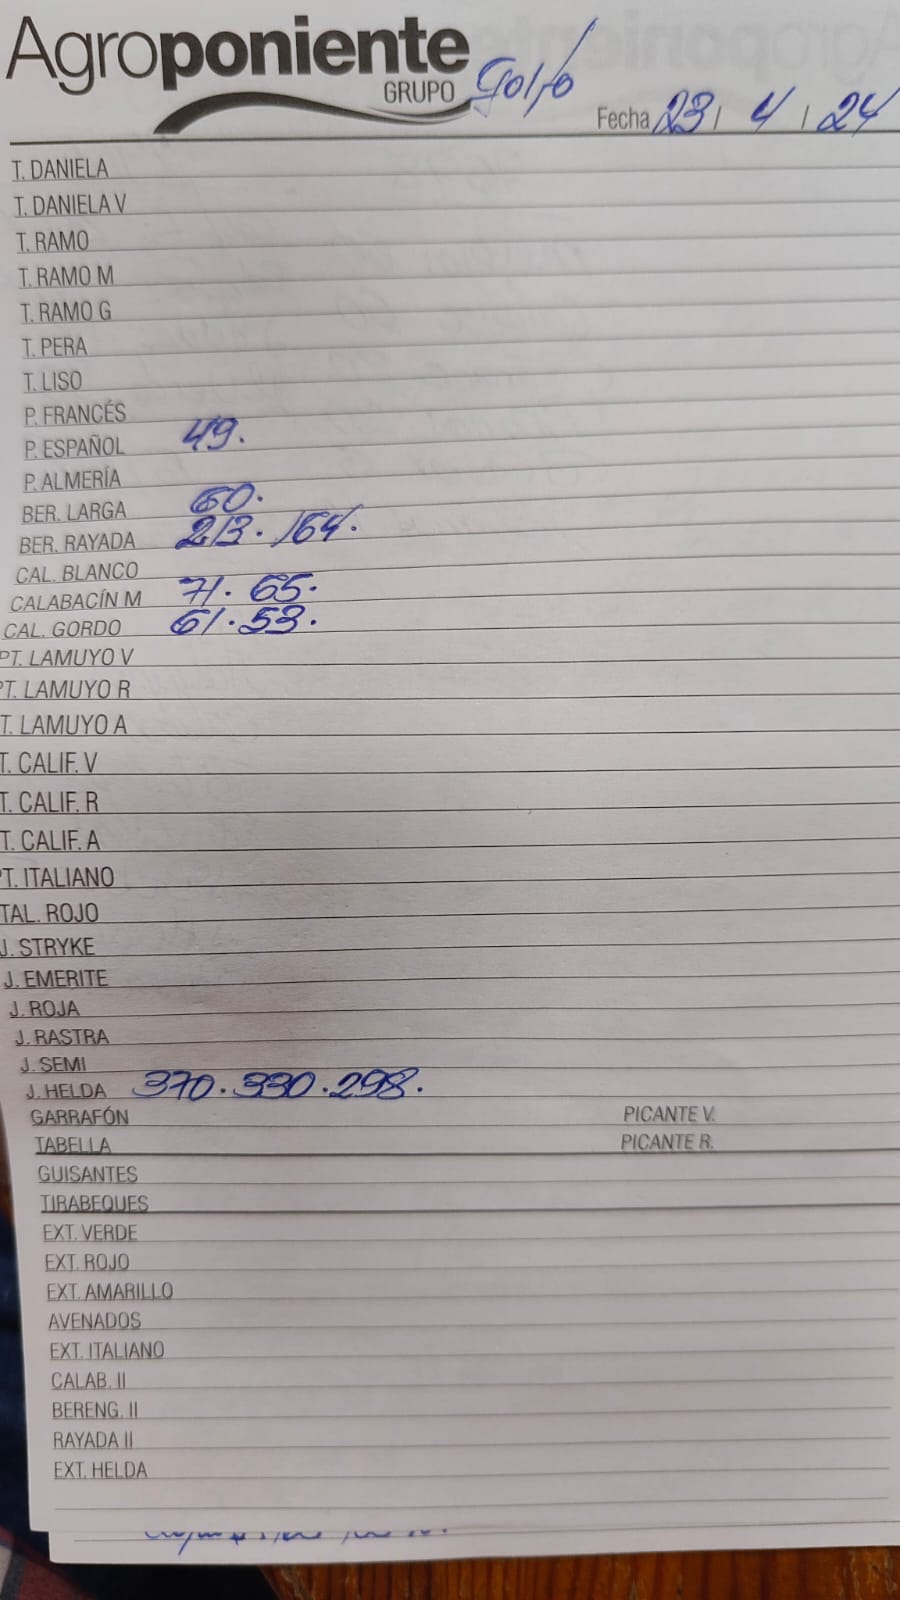 Agroponiente
GRUPO Golfo
Fecha 23/ 4 / 24
T. DANIELA
T. DANIELA V
T. RAMO
T. RAMO M
T. RAMO G
T. PERA
T. LISO
P. FRANCÉS
P. ESPAÑOL 49.
P. ALMERÍA
BER. LARGA 60.
BER. RAYADA 213. 164.
CAL. BLANCO
CALABACÍN M 71. 65.
CAL. GORDO 61. 53.
PT. LAMUYO V
PT. LAMUYO R
T. LAMUYO A
T. CALIF. V
T. CALIF. R
T. CALIF. A
PT. ITALIANO
TAL. ROJO
J. STRYKE
J. EMERITE
J. ROJA
J. RASTRA
J. SEMI
J. HELDA 370. 330. 298.
GARRAFÓN PICANTE V.
TABELLA PICANTE R.
GUISANTES
TIRABEQUES
EXT. VERDE
EXT. ROJO
EXT. AMARILLO
AVENADOS
EXT. ITALIANO
CALAB. II
BERENG. II
RAYADA II
EXT. HELDA